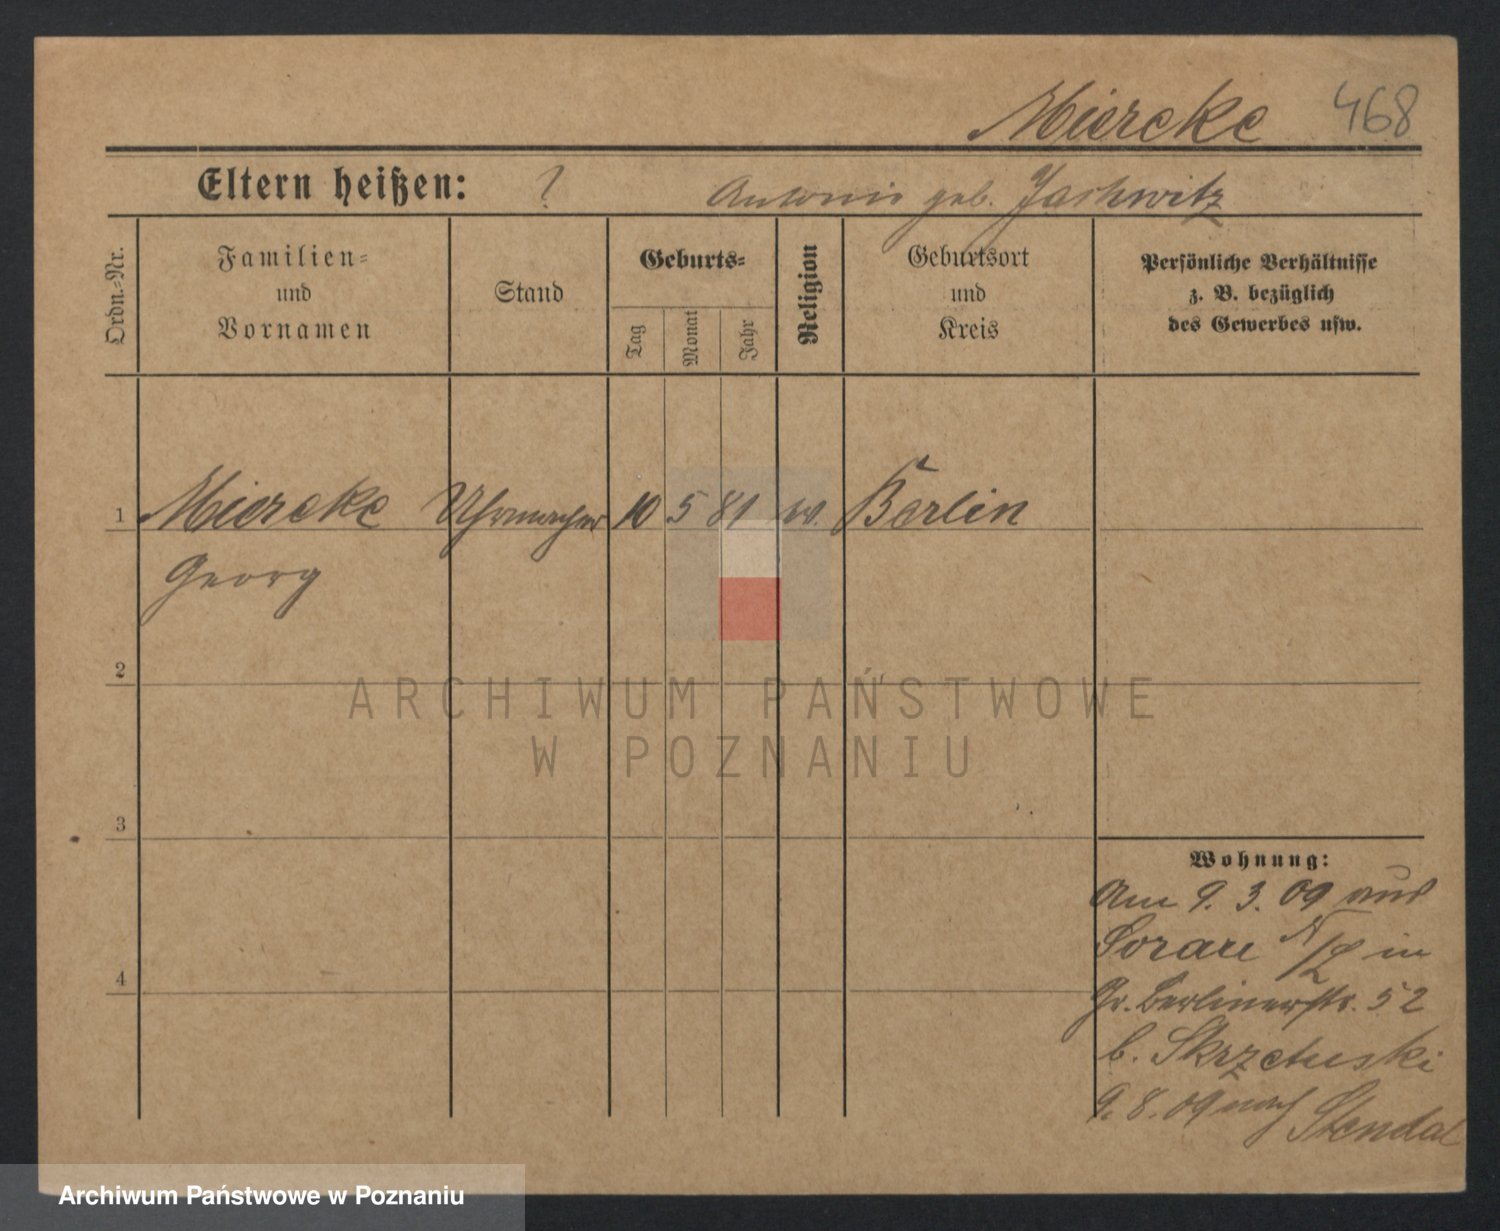 Miercke 468
Eltern heißen: ? Antonie geb. Jachwitz
Ordn.-Nr.
Familien-
und
Vornamen
Stand
Geburts-
Tag
Monat
Jahr
Religion
Geburtsort
und
Kreis
Persönliche Verhältnisse
z. B. bezüglich
des Gewerbes usw.
1 Miercke Uhrmacher 10 5 81 ev. Berlin
Georg
2
ARCHIWUM PAŃSTWOWE
W POZNANIU
3
Wohnung:
Am 9. 3. 09 aus
Sorau N/L in
Gr. Berlinerstr. 52
4
b. Skrzetuski
9. 8. 09 nach Stendal
Archiwum Państwowe w Poznaniu